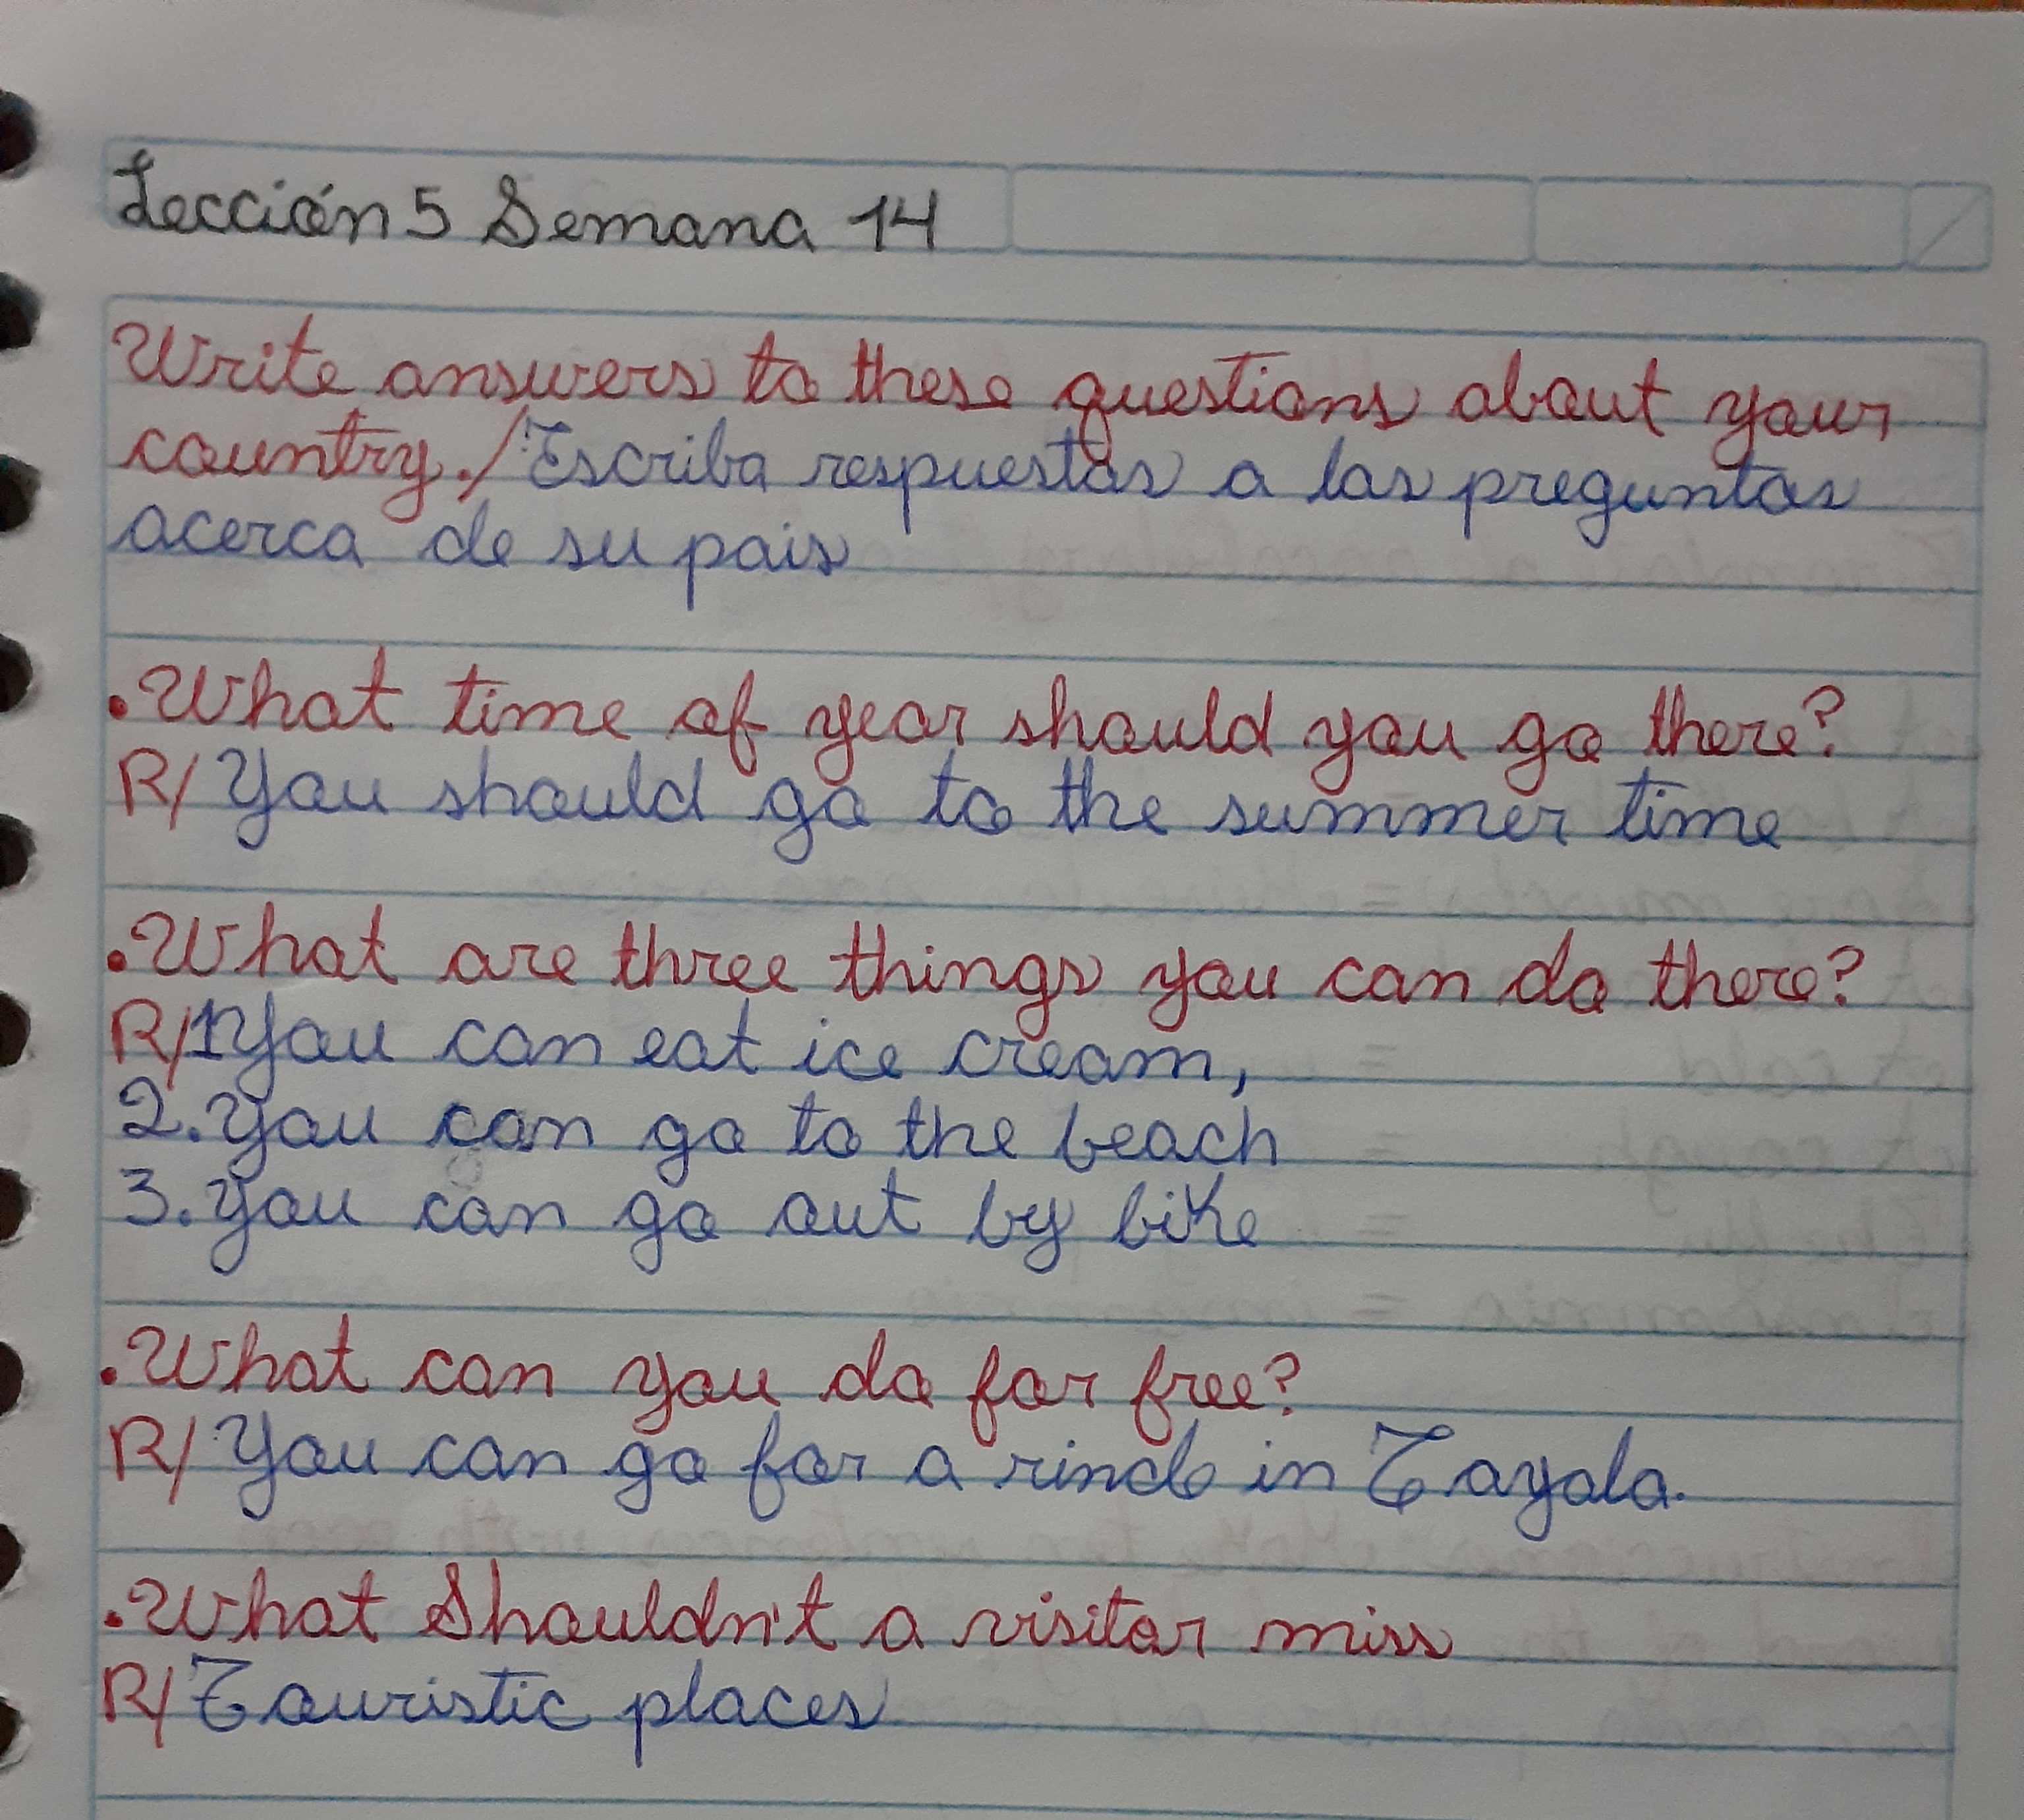 Lección 5 Semana 14
Write answers to these questions about your
country./Escriba respuestas a las preguntas
acerca de su pais
.What time of year should you go there?
R/ You should go to the summer time
.What are three things you can do there?
R/1You can eat ice cream,
2. you can go to the beach
3. you can go out by bike
.What can you do for free?
R/ You can go for a rinde in Cayala.
.What Shouldn't a visitor miss
R/ Touristic places